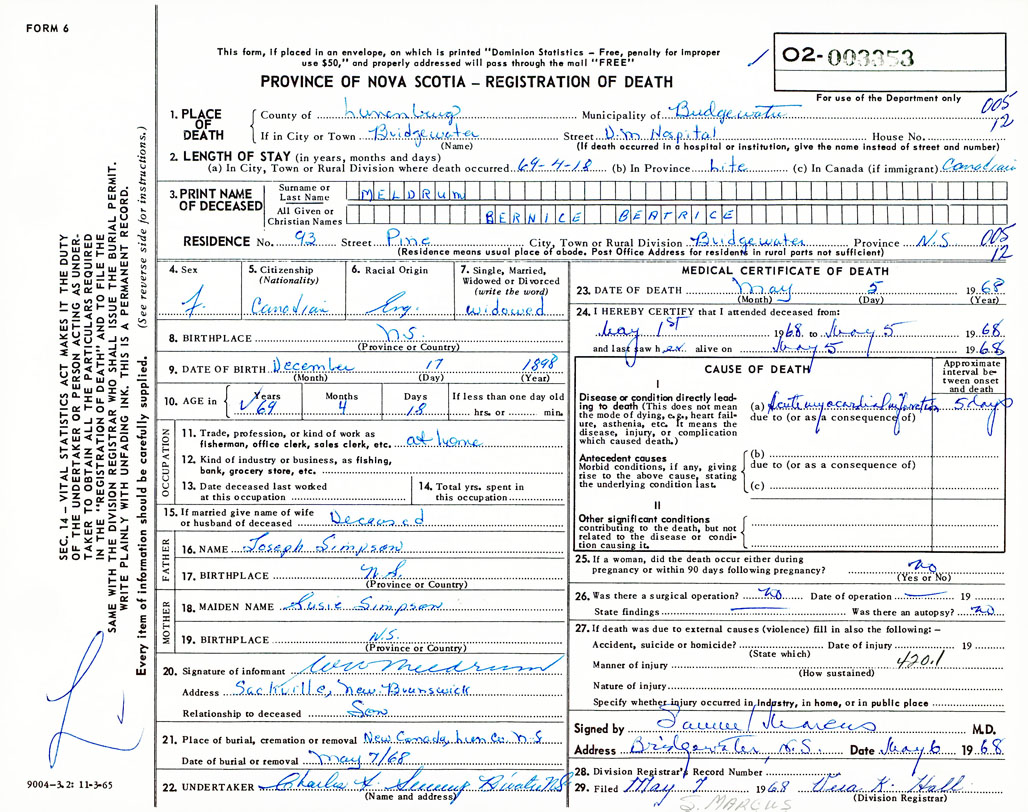 FORM 6
This form, if placed in an envelope, on which is printed "Dominion Statistics – Free, penalty for improper
use $50," and properly addressed will pass through the mail "FREE"
O2-003353
PROVINCE OF NOVA SCOTIA – REGISTRATION OF DEATH
For use of the Department only
005
12
1. PLACE OF DEATH
County of Lunenburg Municipality of Bridgewater
If in City or Town Bridgewater Street D.M. Hospital House No.
(Name) (If death occurred in a hospital or institution, give the name instead of street and number)
2. LENGTH OF STAY (in years, months and days)
(a) In City, Town or Rural Division where death occurred 69-4-18 (b) In Province Life (c) In Canada (if immigrant) Canadian
3. PRINT NAME OF DECEASED
Surname or Last Name MELDRUM
All Given or Christian Names BERNICE BEATRICE
RESIDENCE No. 93 Street Pine City, Town or Rural Division Bridgewater Province N.S. 005
12
(Residence means usual place of abode. Post Office Address for residents in rural parts not sufficient)
4. Sex
f.
5. Citizenship
(Nationality)
Canadian
6. Racial Origin
Eng.
7. Single, Married,
Widowed or Divorced
(write the word)
widowed
8. BIRTHPLACE N.S.
(Province or Country)
9. DATE OF BIRTH December 17 1898
(Month) (Day) (Year)
10. AGE in
Years Months Days If less than one day old
69 4 18 hrs. or min.
OCCUPATION
11. Trade, profession, or kind of work as
fisherman, office clerk, sales clerk, etc. at home
12. Kind of industry or business, as fishing,
bank, grocery store, etc.
13. Date deceased last worked
at this occupation
14. Total yrs. spent in
this occupation
15. If married give name of wife
or husband of deceased Deceased
FATHER
16. NAME Joseph Simpson
17. BIRTHPLACE N.S.
(Province or Country)
MOTHER
18. MAIDEN NAME Susie Simpson
19. BIRTHPLACE N.S.
(Province or Country)
20. Signature of informant Meldrum
Address Sackville, New Brunswick
Relationship to deceased Son
21. Place of burial, cremation or removal New Canada, Lun Co. N.S
Date of burial or removal May 7/68
22. UNDERTAKER Charles N.S.
(Name and address)
MEDICAL CERTIFICATE OF DEATH
23. DATE OF DEATH May 5 1968
(Month) (Day) (Year)
24. I HEREBY CERTIFY that I attended deceased from:
May 1st 1968 to May 5 1968
and last saw her alive on May 5 1968
CAUSE OF DEATH
Approximate
interval be-
tween onset
and death
I
Disease or condition directly lead-
ing to death (This does not mean
the mode of dying, e.g., heart fail-
ure, asthenia, etc. It means the
disease, injury, or complication
which caused death.)
(a) Acute myocardial infarction 5 days
due to (or as a consequence of)
Antecedent causes
Morbid conditions, if any, giving
rise to the above cause, stating
the underlying condition last.
(b)
due to (or as a consequence of)
(c)
II
Other significant conditions
contributing to the death, but not
related to the disease or condi-
tion causing it.
25. If a woman, did the death occur either during
pregnancy or within 90 days following pregnancy? no
(Yes or No)
26. Was there a surgical operation? no Date of operation 19
State findings Was there an autopsy? no
27. If death was due to external causes (violence) fill in also the following: –
Accident, suicide or homicide? Date of injury 19
(State which)
Manner of injury 420.1
(How sustained)
Nature of injury
Specify whether injury occurred in industry, in home, or in public place
Signed by Samuel Marcus M.D.
Address Bridgewater, N.S. Date May 6 1968
28. Division Registrar's Record Number
29. Filed May 7 1968 Vera K. Hall
(Division Registrar)
S. MARCUS
SEC. 14 – VITAL STATISTICS ACT MAKES IT THE DUTY
OF THE UNDERTAKER OR PERSON ACTING AS UNDER-
TAKER TO OBTAIN ALL THE PARTICULARS REQUIRED
IN THE "REGISTRATION OF DEATH" AND TO FILE THE
SAME WITH THE DIVISION REGISTRAR WHO SHALL ISSUE THE BURIAL PERMIT.
WRITE PLAINLY WITH UNFADING INK. THIS IS A PERMANENT RECORD.
Every item of information should be carefully supplied. (See reverse side for instructions.)
9004-3.2: 11-3-65